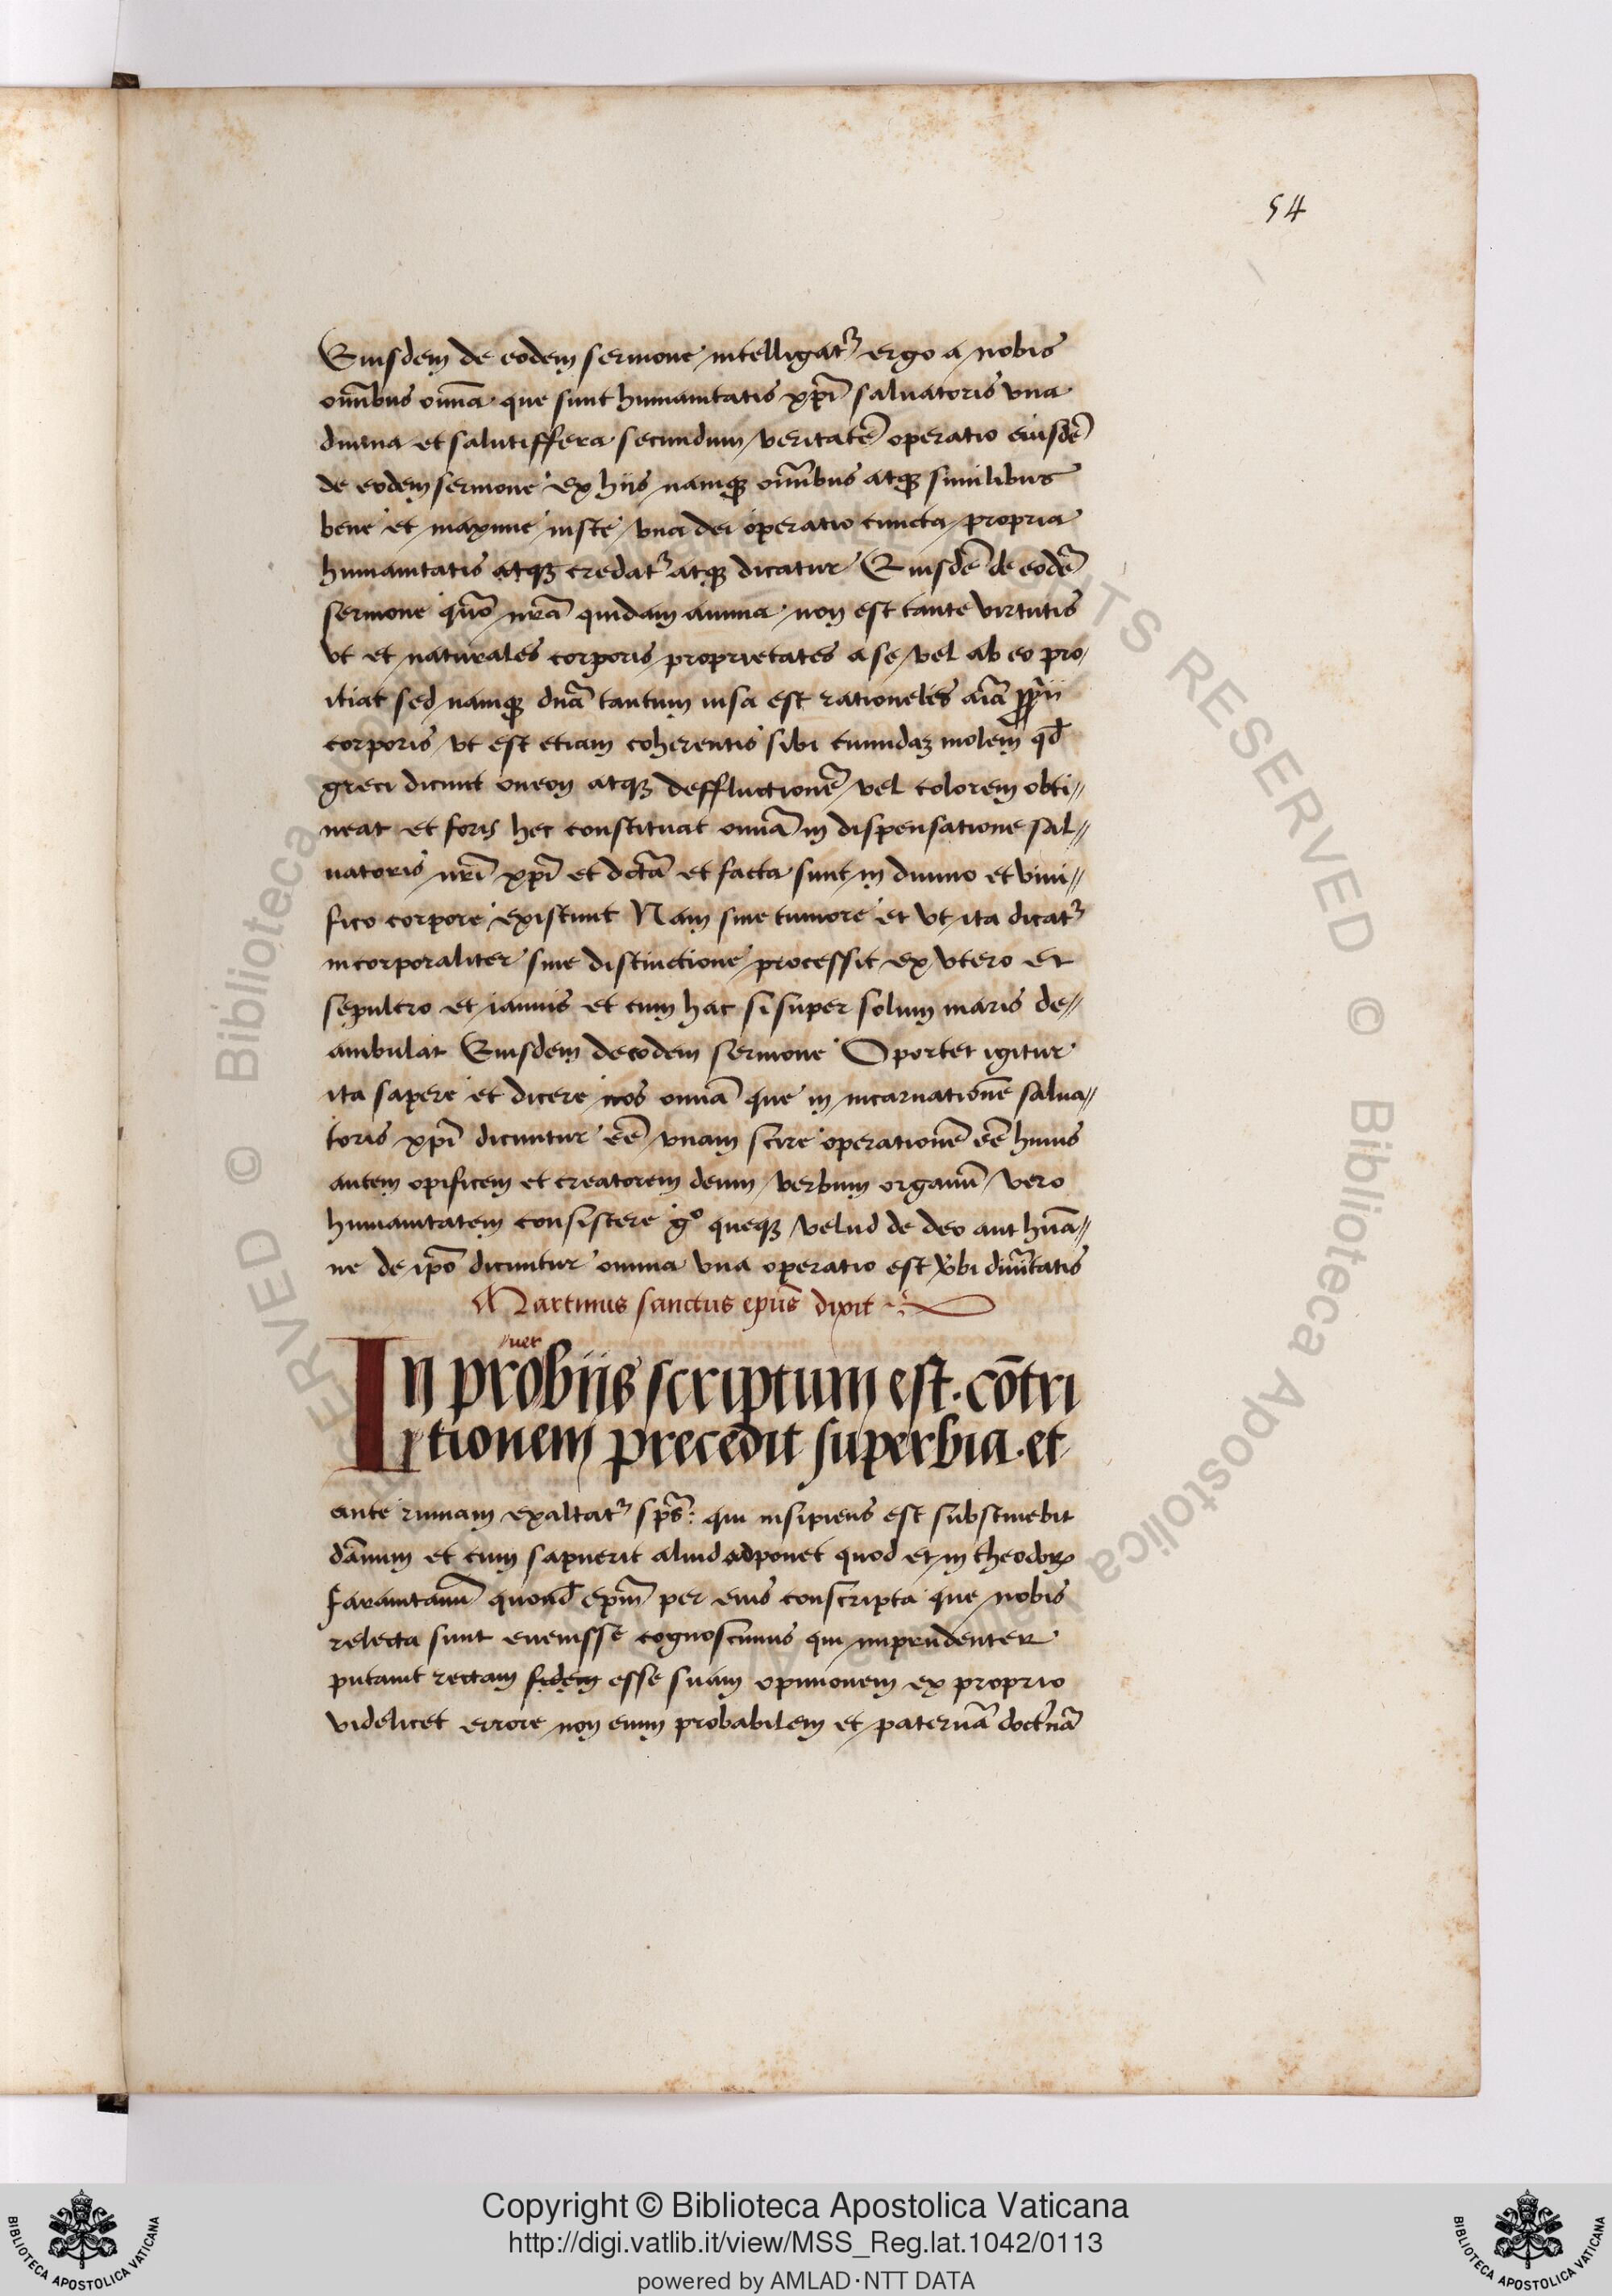 54
Eiusdem de eodem sermone intelligat᷒ ergo a nobis
om̄ibus om̄ia que sunt humanitatis xp̄i saluatoris vna
diuina et salutiffera secundum veritatē operatio eiusdē
de eodem sermone ex hiis namqꝫ om̄ibus atqꝫ similibus
bene et maxime iuste vna dei operatio cuncta propria
humanitatis atqꝫ credat᷒ atqꝫ dicatur Eiusdē de eodē
sermone quō nr̄a quidam anima non est tante virtutis
vt et naturales corporis proprietates a se vel ab eo pro
iciat sed namqꝫ dn̄a tantum iusa est rationeles aīa ꝓp̄ii
corporis vt est etiam coherentis sibi cuiusdaꝫ molem qd̄
greci dicunt oncon atqꝫ deffluctionē vel colorem obti⸗
neat et foris hec constituat om̄ia in dispensatione sal⸗
uatoris nr̄i xp̄i et dicta et facta sunt in diuino et viui⸗
fico corpore existunt Nam sine tumore et vt ita dicat᷒
incorporaliter sine distinctione processit ex vtero et
sepulcro et ianuis et cum hac si super solum maris de⸗
ambulat Eiusdem de eodem sermone Oportet igitur
ita sapere et dicere nos omnia que in incarnationē salua⸗
toris xp̄i dicuntur eē vnam scire operationē eē huius
autem opificem et creatorem deum verbum organū vero
humanitatem consistere gͦ queqꝫ velud de deo aut hūa⸗
ne de ip̄o dicuntur omnia vna operatio est v̄bi diuītatis
Martinus sanctus ep̄us dixit
uer
In probiis scriptum est. cōtri
tionem precedit superbia. et
ante ruinam exaltat᷒ sp̄s: qui insipiens est substinebit
dānum et cum sapuerit aliud adponet quod et in theodoꝝ
faranitanū quond̄ ep̄m per eius conscripta que nobis
relecta sunt euenisse cognoscimus qui imprudenter
putauit rectam fidem esse suam opinionem ex proprio
videlicet errore non enim probabilem et paternā doct'nā
Copyright © Biblioteca Apostolica Vaticana
http://digi.vatlib.it/view/MSS_Reg.lat.1042/0113
powered by AMLAD·NTT DATA
BIBLIOTECA APOSTOLICA VATICANA
BIBLIOTECA APOSTOLICA VATICANA